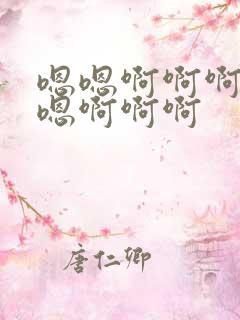 嗯嗯啊啊啊
嗯啊啊啊
唐仁卿